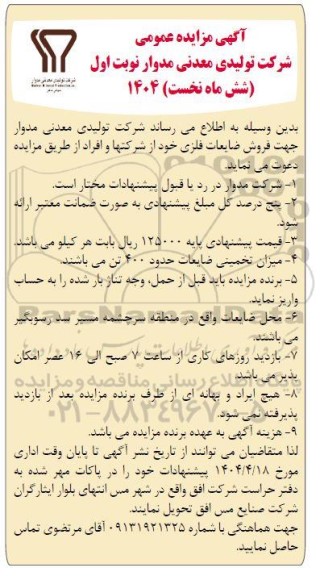 آگهی مزایده عمومی
شرکت تولیدی معدنی مدوار نوبت اول
(شش ماه نخست) ۱۴۰۴
شرکت تولیدی معدنی مدوار
بدین وسیله به اطلاع می رساند شرکت تولیدی معدنی مدوار
جهت فروش ضایعات فلزی خود از شرکتها و افراد از طریق مزایده
دعوت می نماید.
۱- شرکت مدوار در رد یا قبول پیشنهادات مختار است.
۲- پنج درصد کل مبلغ پیشنهادی به صورت ضمانت معتبر ارائه
شود.
۳- قیمت پیشنهادی پایه ۱۲۵۰۰۰ ریال بابت هر کیلو می باشد.
۴- میزان تخمینی ضایعات حدود ۴۰۰ تن می باشند.
۵- برنده مزایده باید قبل از حمل، وجه تناژ بار شده را به حساب
واریز نماید.
۶- محل ضایعات واقع در منطقه سرچشمه مسیر سد رسوبگیر
می باشند.
۷- بازدید روزهای کاری از ساعت ۷ صبح الی ۱۶ عصر امکان
پذیر می باشد.
۸- هیچ ایراد و بهانه ای از طرف برنده مزایده بعد از بازدید
پذیرفته نمی شود.
۹- هزینه آگهی به عهده برنده مزایده می باشد.
لذا متقاضیان می توانند از تاریخ نشر آگهی تا پایان وقت اداری
مورخ ۱۴۰۴/۴/۱۸ پیشنهادات خود را در پاکات مهر شده به
دفتر حراست شرکت افق واقع در شهر مس انتهای بلوار ایثارگران
شرکت صنایع مس افق تحویل نمایند.
جهت هماهنگی با شماره ۰۹۱۳۱۹۲۱۳۲۵ آقای مرتضوی تماس
حاصل نمایید.
ParsNamadData
پایگاه اطلاع رسانی مناقصه و مزایده
۰۲۱-۸۸۳۴۹۶۷۰-۵